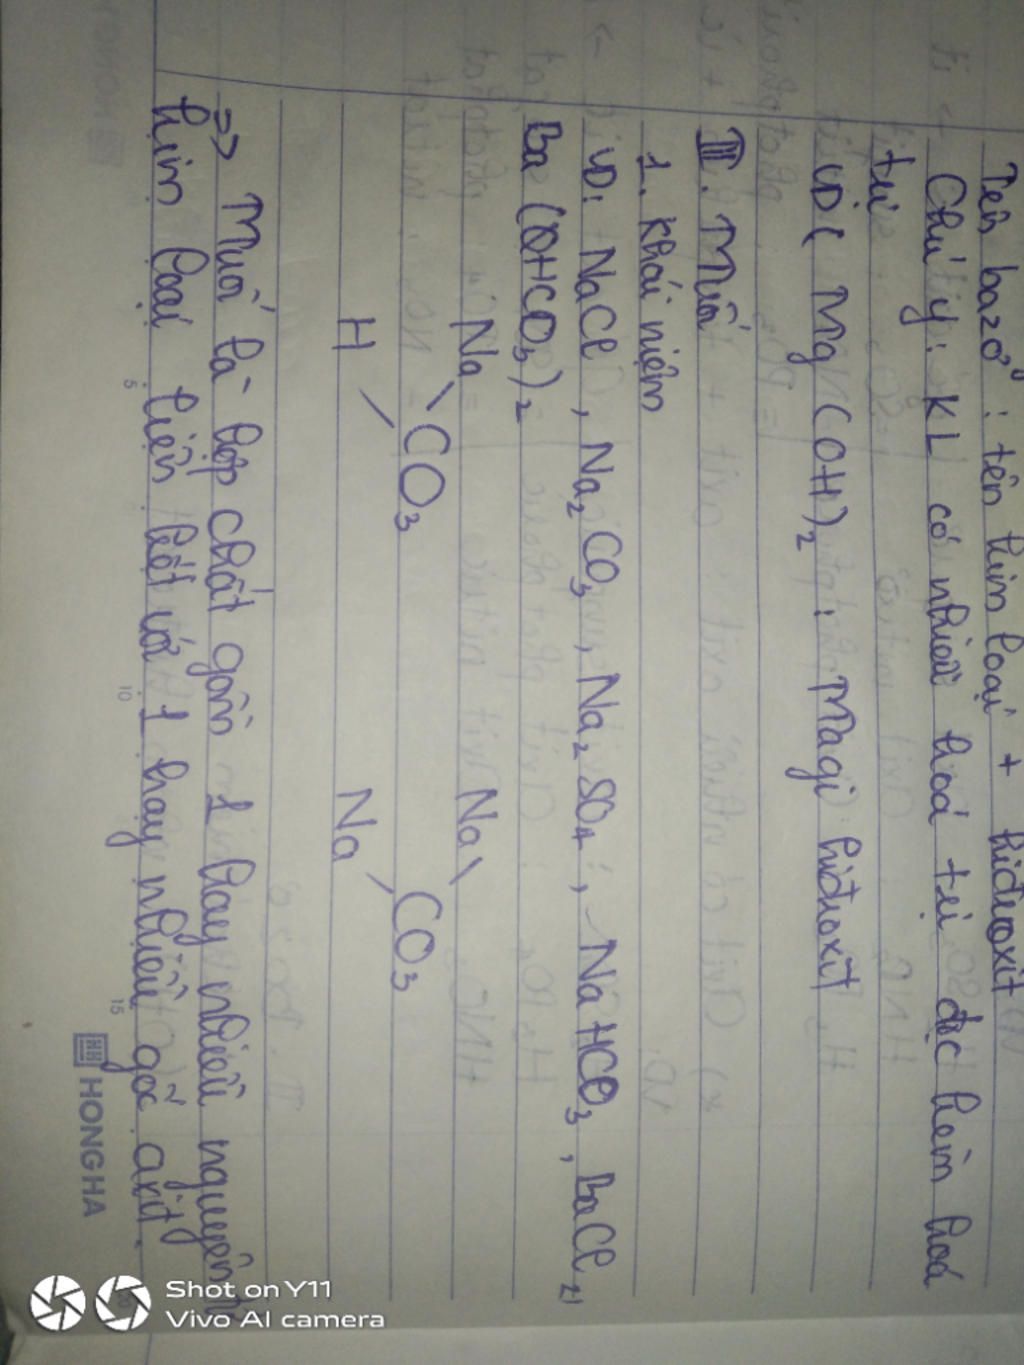 Tên bazơ : tên kim loại + hiđroxit
Chú ý : KL có nhiều hoá trị đọc kèm hoá
trị
VD: Mg(OH)2 : Magi hiđroxit
III. Muối
1. Khái niệm
VD: NaCl , Na2CO3 , Na2SO4 , NaHCO3 , BaCl2,
Ba(HCO3)2
Na Na
CO3 CO3
H Na
=> Muối là hợp chất gồm 1 hay nhiều nguyên tử
kim loại liên kết với 1 hay nhiều gốc axit.
5 10 15
HONG HA
Shot on Y11
Vivo AI camera